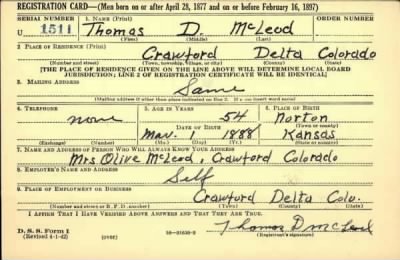 REGISTRATION CARD—(Men born on or after April 28, 1877 and on or before February 16, 1897)
SERIAL NUMBER 1. NAME (Print) ORDER NUMBER
U 1511 Thomas D. McLeod
(First) (Middle) (Last)
2. PLACE OF RESIDENCE (Print)
Crawford Delta Colorado
(Number and street) (Town, township, village, or city) (County) (State)
[THE PLACE OF RESIDENCE GIVEN ON THE LINE ABOVE WILL DETERMINE LOCAL BOARD
JURISDICTION; LINE 2 OF REGISTRATION CERTIFICATE WILL BE IDENTICAL]
3. MAILING ADDRESS
Same
[Mailing address if other than place indicated on line 2. If same insert word same]
4. TELEPHONE 5. AGE IN YEARS 6. PLACE OF BIRTH
none 54 Norton
DATE OF BIRTH (Town or county)
Mar. 1 1888 Kansas
(Exchange) (Number) (Mo.) (Day) (Yr.) (State or country)
7. NAME AND ADDRESS OF PERSON WHO WILL ALWAYS KNOW YOUR ADDRESS
Mrs Olive McLeod, Crawford Colorado
8. EMPLOYER'S NAME AND ADDRESS
Self
9. PLACE OF EMPLOYMENT OR BUSINESS
Crawford Delta Colo.
(Number and street or R. F. D. number) (Town) (County) (State)
I AFFIRM THAT I HAVE VERIFIED ABOVE ANSWERS AND THAT THEY ARE TRUE.
D. S. S. Form 1 Thomas D McLeod
(Revised 4-1-42) (over) (Registrant's signature)